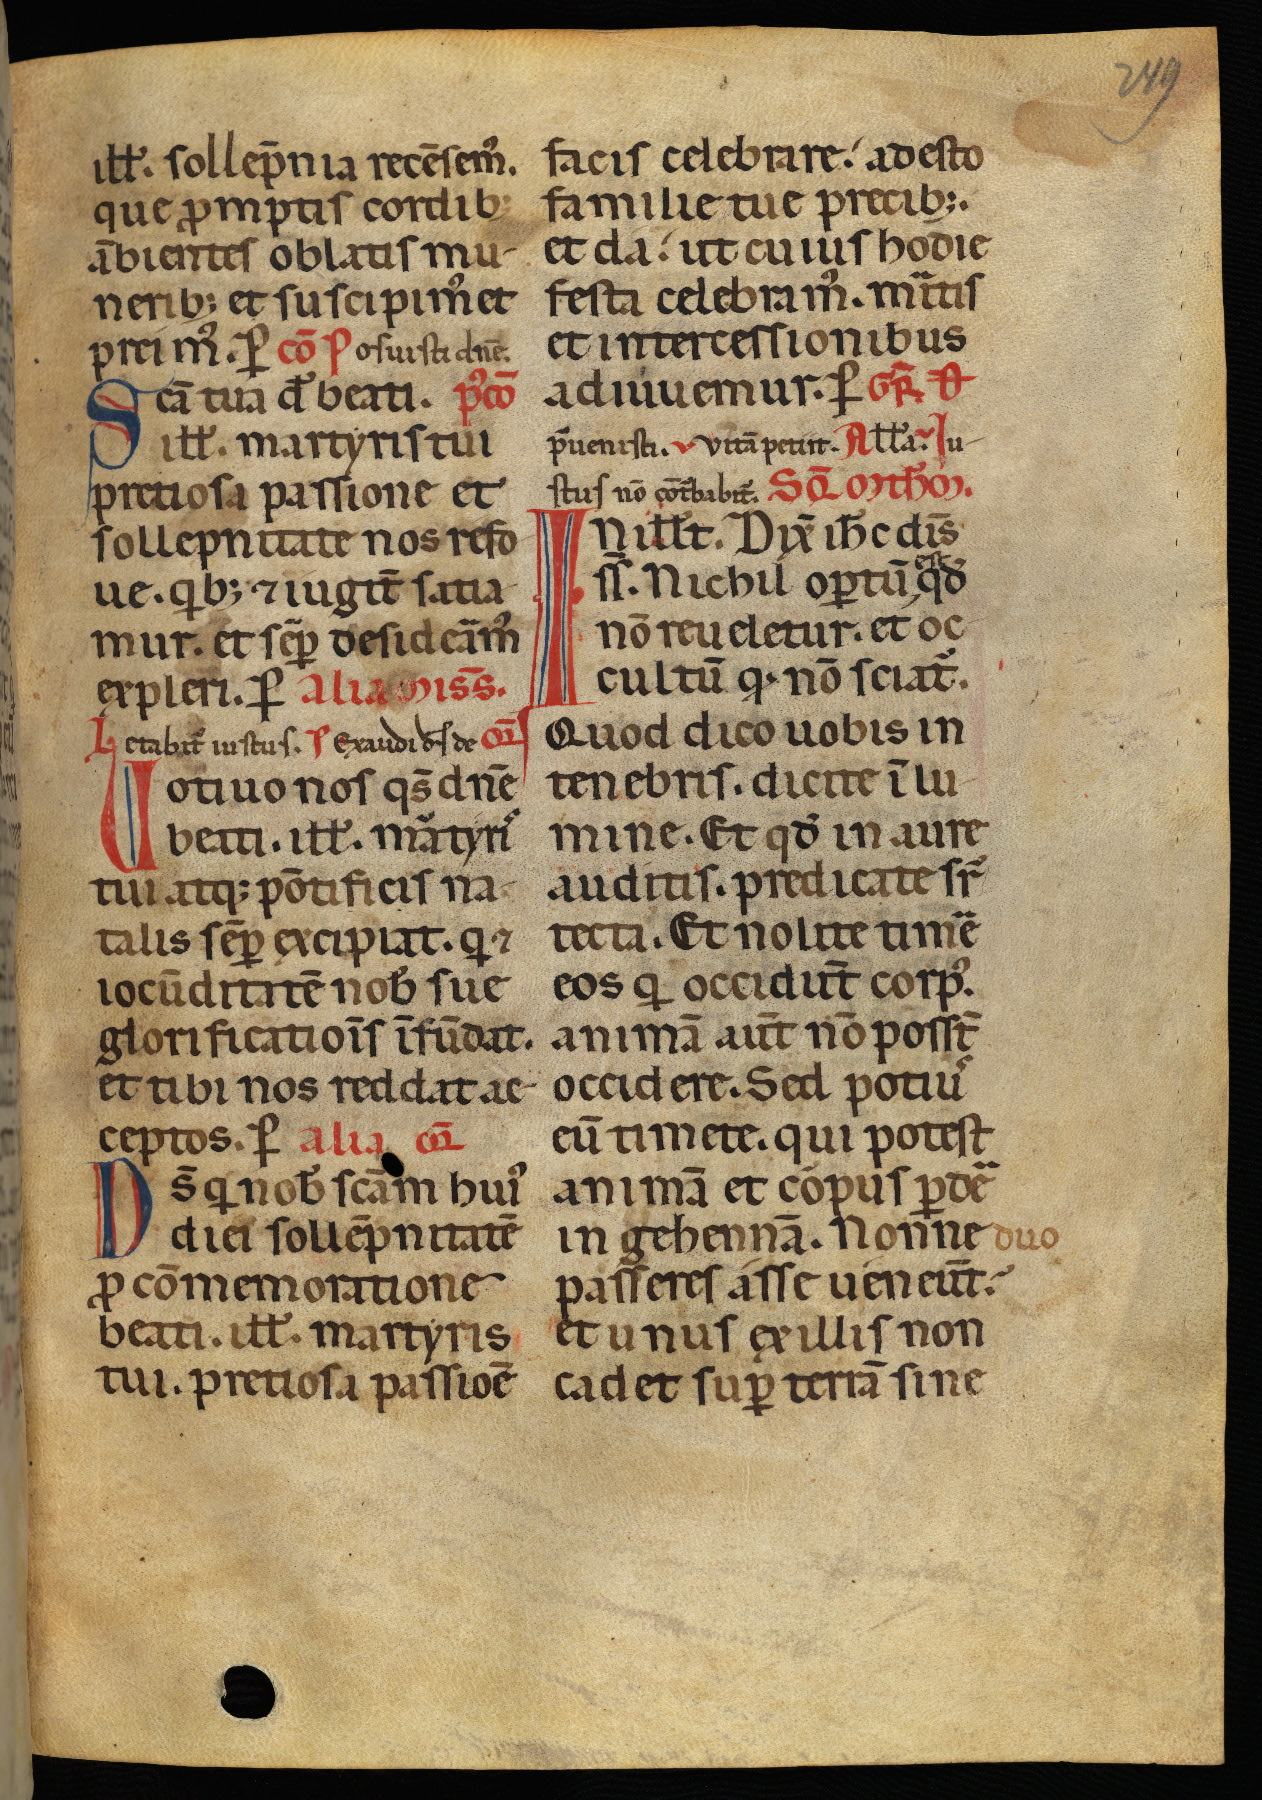 249
ill̃. sollep̄nia recēsem᷒.
que ꝓmptis cordib;
ābientes oblatis mu-
nerib; et suscipim᷒ et
preim᷒. ꝑ cō Posuisti dnē.
Scā tua d̄ beati. p᷒cō
ill̃. martyris tui
pretiosa passione et
sollepnitate nos refo
ue. qib; ⁊ iugit̄ satia
mur. et sēꝑ desideam᷒
expleri. ꝑ Alia miss̄.
Letabit᷒ iustus. P Exaudi ds̄ de oR̄
Uotiuo nos qs̄ dnē
beati. ill̃. mātyris
tui atq; pōtificis na-
talis sēꝑ excipiat. q ⁊
iocūditatē nob̄ sue
glorificatioīs īfūdat.
et tibi nos reddat ac-
ceptos. ꝑ alia oR̄
Ds̄ qi nob̄ scām hui᷒
diei sollēpnitatē
ꝓ cōmemoratione
beati. ill̃. martyris
tui. pretiosa passioē
facis celebrare. adesto
familie tue precib;.
et da. ut cuius hodie
festa celebram᷒. mātis
et intercessionibus
adiuuemur. ꝑ GR̄. D̄
p̄uenisti. v vitā petiit. All̃a. Iu-
stus nō cōt̄babit᷒. SQ̄ Mth̄m.
IN ill̃t. Dix̄ ih̄c dis̄
ss̄. Nichil oꝑtū est qd̄
nō reueletur. et oc
cultū q nō sciat᷒.
Quod dico uobis in
tenebris. dicite ī lu-
mine. Et qd̄ in aure
auditis. predicate sr̄
tecta. Et nolite timē
eos qi occidūt corp᷒.
animā aūt nō posst̄
occidere. Sed potius
eū timete. qui potest
animā et corpus ꝑdē
in gehennā. Nonne duo
passeres asse ueneūt.
et unus ex illis non
cadet suꝑ terrā sine